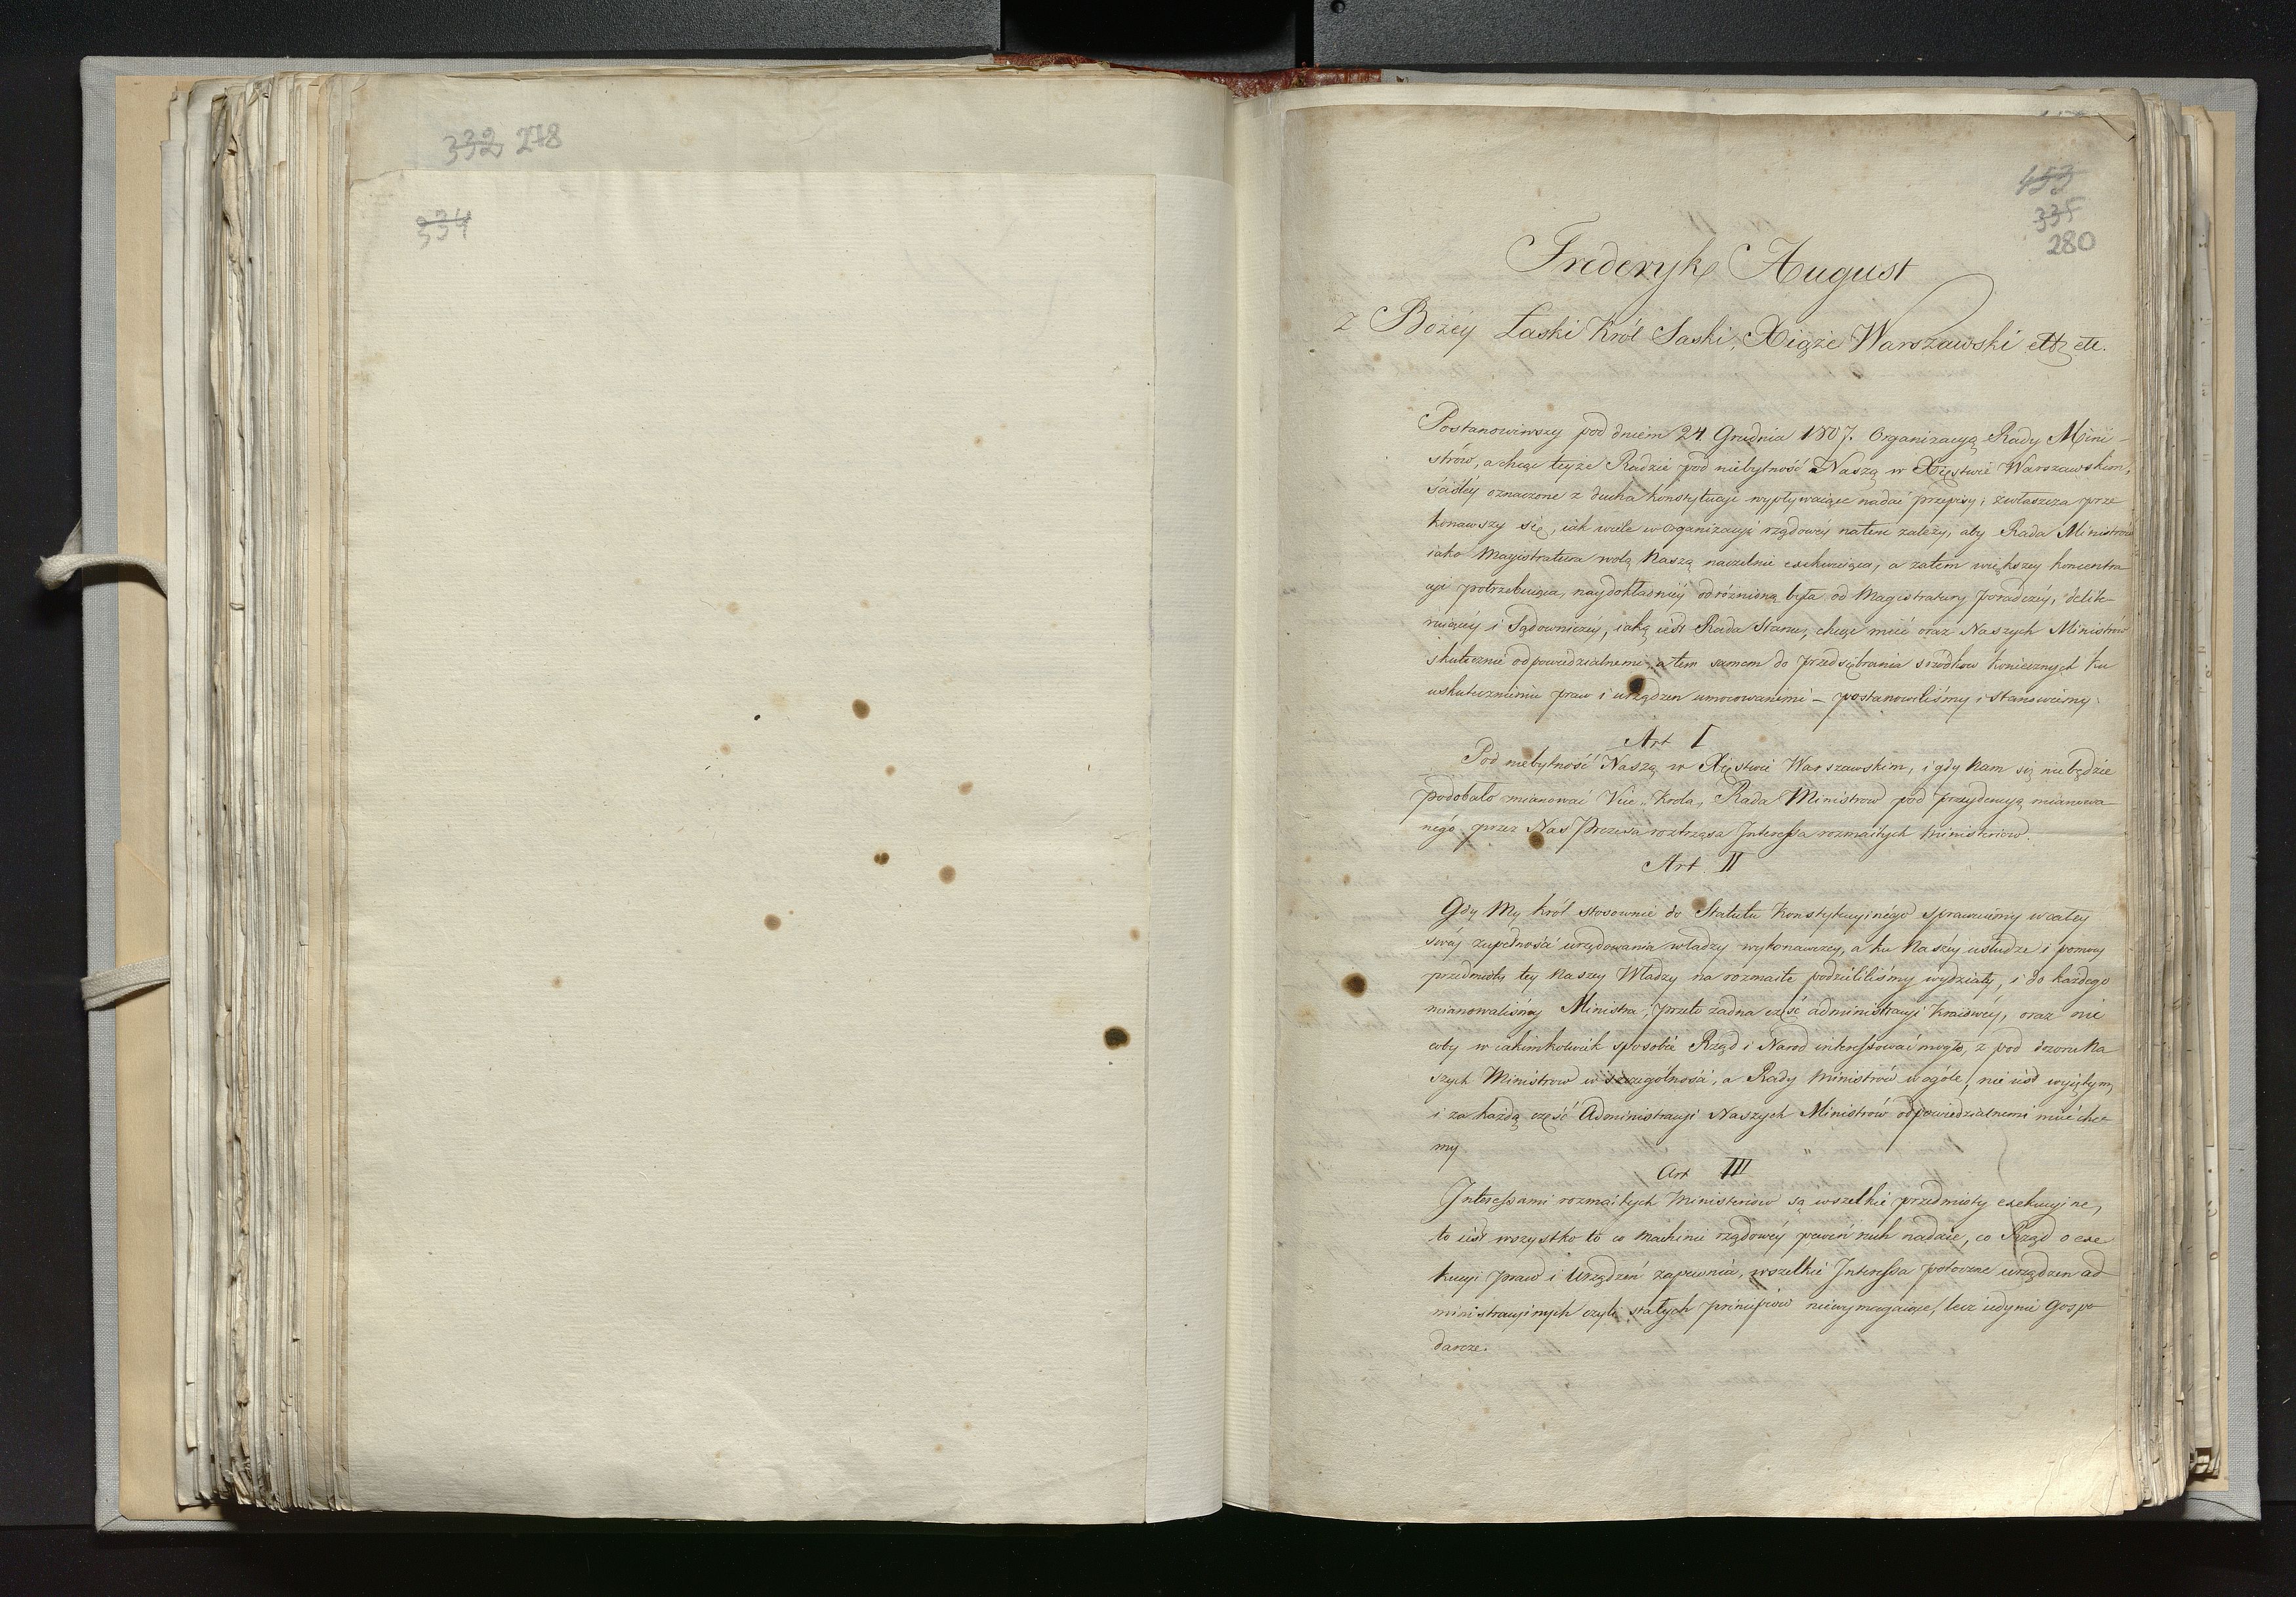 332 278
334
453
335
280
Frederyk August
z Bożey Łaski Król Saski, Xiąże Warszawski ett. ett.
Postanowiwszy pod dniem 24 Grudnia 1807. Organizacyą Rady Mini-
strów, a chcąc teyże Radzie pod niebytność Naszą w Xięstwie Warszawskim,
ściśley oznaczone z ducha konstytucyi wypływaiące nadać przepisy; zwłaszcza prze
konawszy się, iak wiele w organizacyi rządowey natem zależy, aby Rada Ministrów
iako Magistratura wolą Naszą naczelnie exekwuiąca, a zatem większey koncentra
cyi potrzebuiąca, naydokładniey odróżnioną była od Magistratury poradczey, delibe-
ruiącey i Sądowniczey, iaką iest Rada Stanu, chcąc mieć oraz Naszych Ministrów
skutecznie odpowiedzialnemi, a tem samem do przedsiębrania srzodkow koniecznych ku
uskutecznieniu praw i urządzen umocowanemi – postanowiliśmy i stanowiemy.
Art I
Pod niebytność Naszą w Xięstwie Warszawskim, i gdy Nam się niebędzie
podobało mianować Vice-Krola, Rada Ministrow pod prezydencyą mianowa
nego przez Nas Prezesa roztrząsa Interessa rozmaitych Ministeriow.
Art. II
Gdy My król stosownie do Statutu Konstytucyinego sprawuiemy w całey
swéy zupełności urzędowania władzy wykonawczey, a ku Naszey usłudze i pomocy
przedmioty tey Naszey Władzy na rozmaite podzieliliśmy wydziały, i do każdego
mianowaliśmy Ministra, przeto żadna część administracyi kraiowéy, oraz nic
coby w iakimkolwiek sposobie Rząd i Narod interessować mogło, z pod dozoru Na
szych Ministrow w szczególności, a Rady Ministrów w ogóle, nie iest wyiętym,
i za każdą część Administracyi Naszych Ministrów odpowiedzialnemi mieć chce-
my
Art III
Interessami rozmaitych Ministeriow są wszelkie przedmioty exekucyine,
to iest wszystko to co machinie rządowéy pewien ruch nadaie, co Rząd o exe
kucyi praw i Urządzeń zapewnia, wszelkie Interessa potoczne urządzen ad
ministracyinych czyli stałych principiow niewymagaiące, lecz iedynie Gospo
darcze.